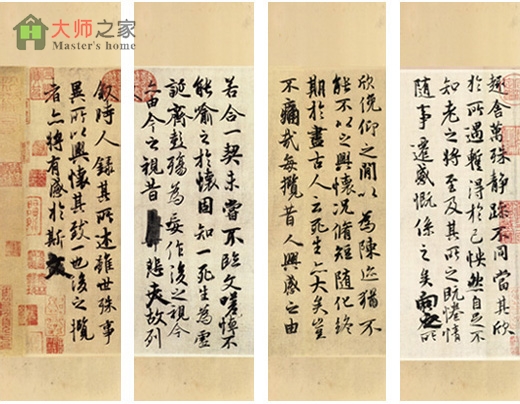 大师之家
Master's home
趣舍萬殊靜躁不同當其欣
於所遇蹔得於己怏然自足不
知老之將至及其所之既惓情
隨事遷感慨係之矣向之所
欣俛仰之間以為陳迹猶不
能不以之興懷況脩短隨化終
期於盡古人云死生亦大矣豈
不痛哉每攬昔人興感之由
若合一契未嘗不臨文嗟悼不
能喻之於懷固知一死生為虛
誕齊彭殤為妄作後之視今
亦由今之視昔悲夫故列
敘時人錄其所述雖世殊事
異所以興懷其致一也後之攬
者亦將有感於斯文